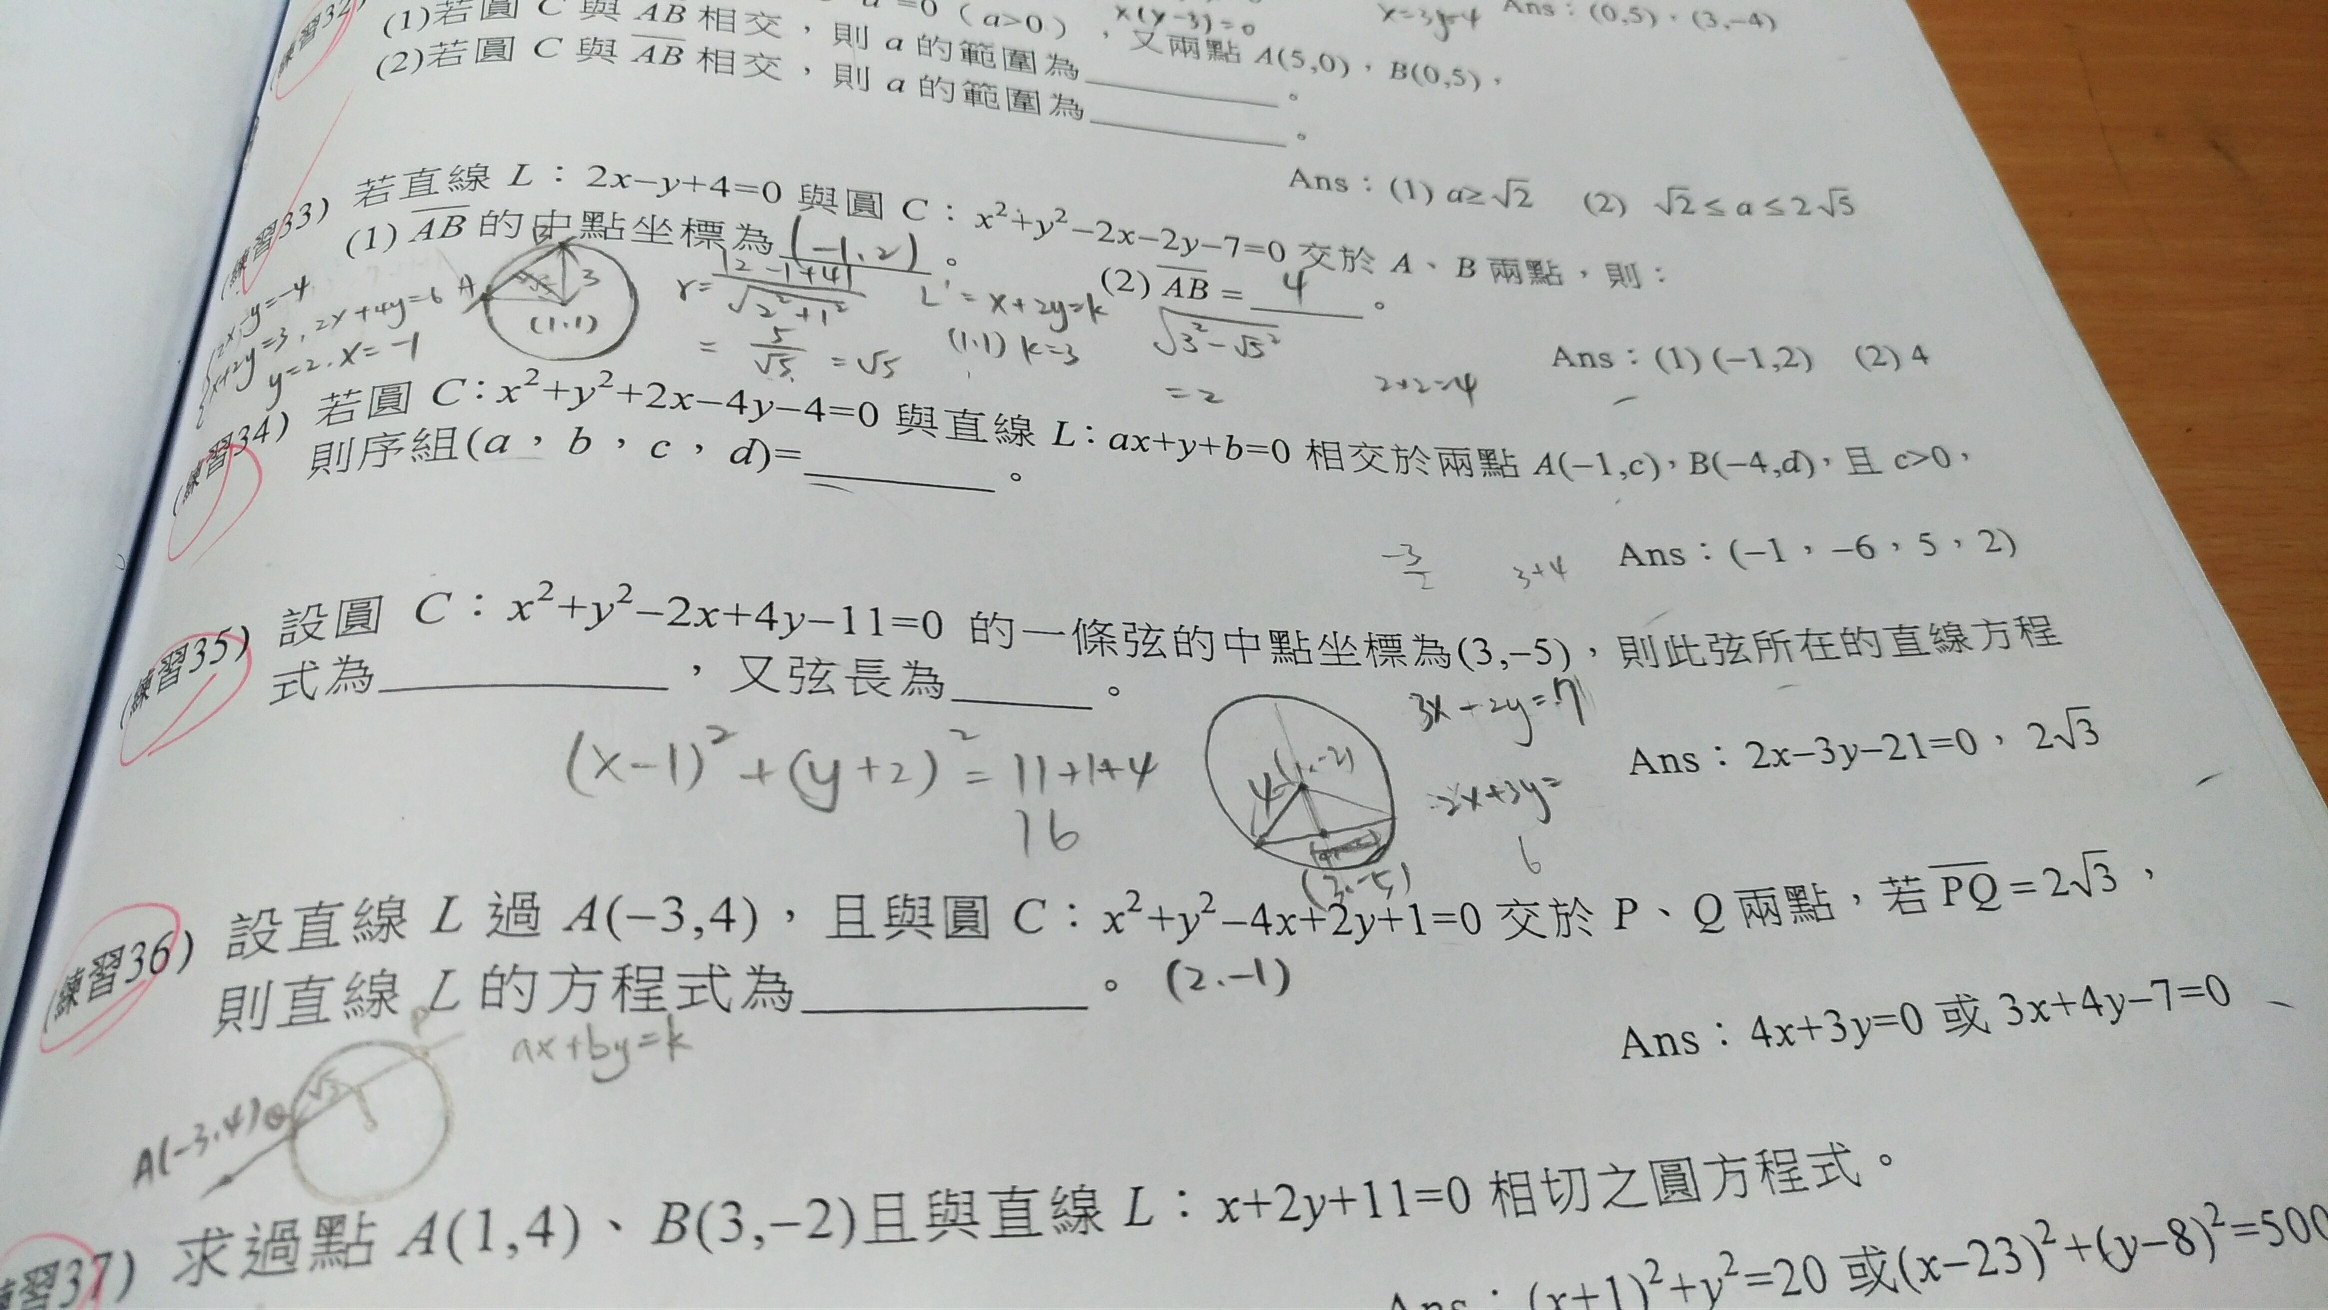 =0（a>0），又兩點 A(5,0)，B(0,5)，
x(y-3)=0
x=3 y=4
Ans：(0,5)，(3,−4)
(1)若圓 C 與 AB 相交，則 a 的範圍為________。
(2)若圓 C 與 AB 相交，則 a 的範圍為________。
Ans：(1) a≥√2 (2) √2≤a≤2√5
(練習33) 若直線 L：2x−y+4=0 與圓 C：x²+y²−2x−2y−7=0 交於 A、B 兩點，則：
(1) AB 的中點坐標為 (-1,2)。 (2) AB = 4。
A
3
(1,1)
r= |2-1+4| / √2²+1²
= 5/√5 = √5
L'= x+2y=k
(1,1) k=3
√3²-√5²
=2
2×2=4
2x-y=-4
x+2y=3, 2x+4y=6
y=2. x=-1
Ans：(1) (−1,2) (2) 4
(練習34) 若圓 C：x²+y²+2x−4y−4=0 與直線 L：ax+y+b=0 相交於兩點 A(−1,c)，B(−4,d)，且 c>0，
則序組(a，b，c，d)=________。
Ans：(−1，−6，5，2)
-3/2
3+4
(練習35) 設圓 C：x²+y²−2x+4y−11=0 的一條弦的中點坐標為(3,−5)，則此弦所在的直線方程
式為________，又弦長為________。
3x+2y=7
Ans：2x−3y−21=0，2√3
(x-1)²+(y+2)²=11+1+4
16
4
(3,-5)
-2x+3y=
6
(練習36) 設直線 L 過 A(−3,4)，且與圓 C：x²+y²−4x+2y+1=0 交於 P、Q 兩點，若 PQ=2√3，
則直線 L 的方程式為________。 (2.-1)
Ans：4x+3y=0 或 3x+4y−7=0
ax+by=k
P
A(-3,4) Q
(練習37) 求過點 A(1,4)、B(3,−2)且與直線 L：x+2y+11=0 相切之圓方程式。
Ans：(x+1)²+y²=20 或(x−23)²+(y−8)²=500